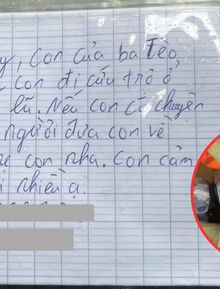 y, con của ba Tèo,
con đi cứu trợ ở
lũ. Nếu con có chuyện
người đưa con về
con nha. Con cảm
nhiều ạ.